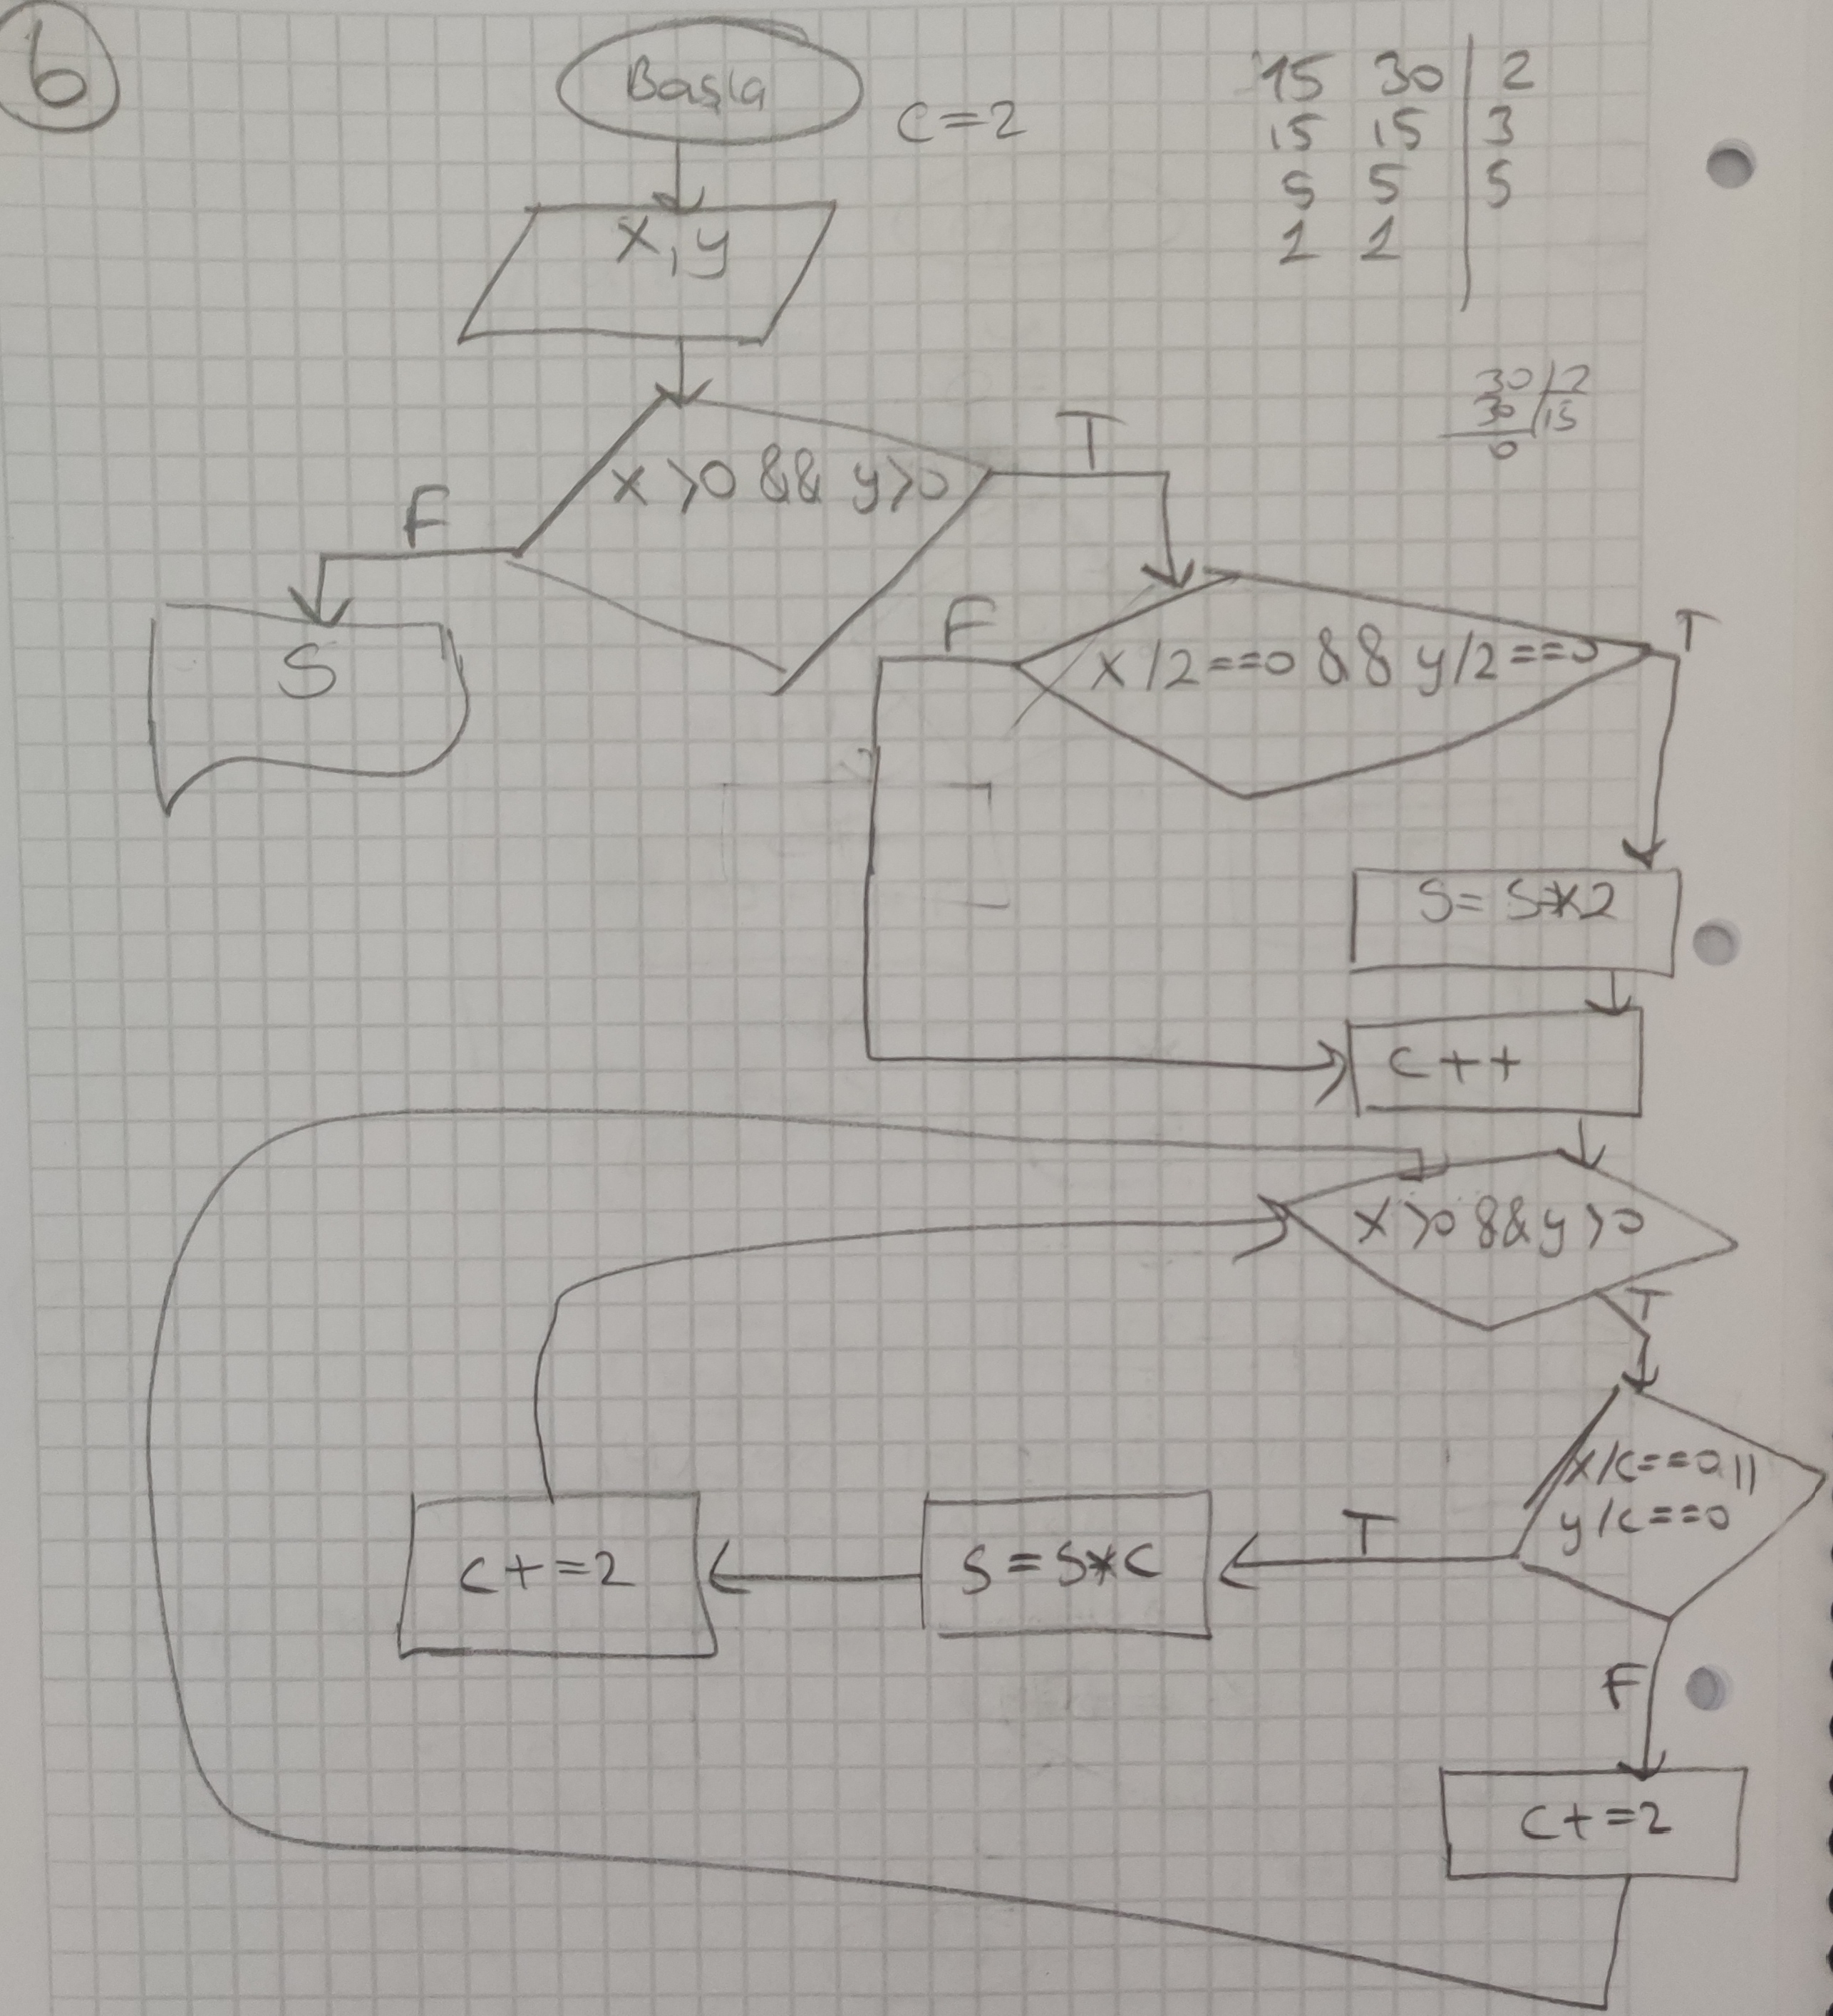 6
Başla
C=2
15 30 | 2
15 15 | 3
5 5 | 5
1 1
x,y
30/2
30/15
0
x>0 && y>0
T
F
S
F
x/2==0 && y/2==0
T
S= S*2
C++
x>0 && y>0
T
x/c==0||
y/c==0
T
S=S*C
C+=2
F
C+=2